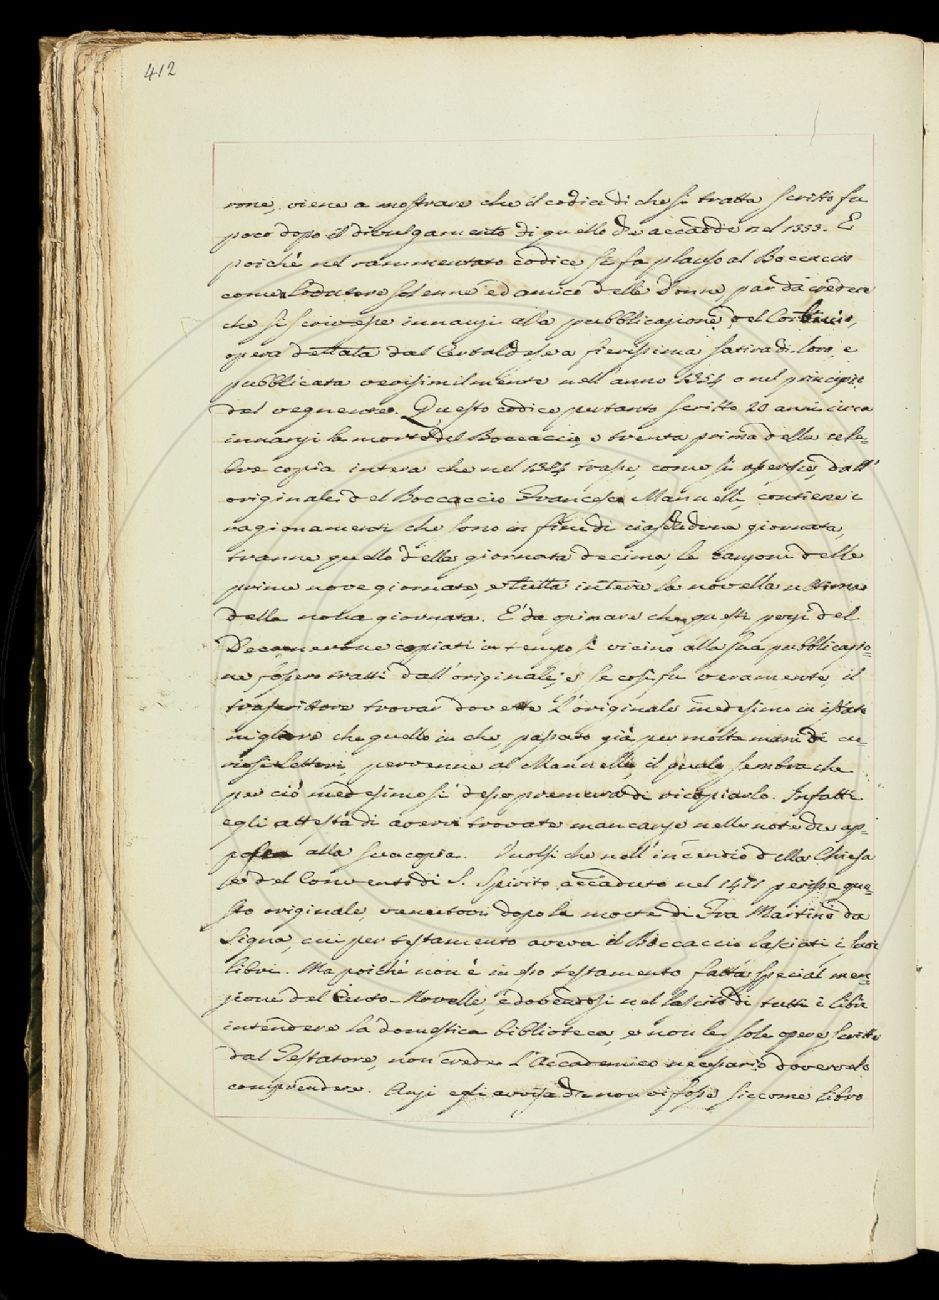 412
rone, viene a mostrare che il codice di che si tratta scritto fu
poco dopo il divulgamento di quello che accadde nel 1353. E
poichè nel rammentato codice si fa plauso al Boccaccio
come lodatore solenne ed amico delle Donne, par da credere
che si scrivesse innanzi alla pubblicazione del Corbaccio,
opera dettata dal Certaldese a fierissima satira di loro, e
pubblicata verisimilmente nell'anno 1354 o nel principio
del vegnente. Questo codice pertanto scritto 20 anni circa
innanzi la morte del Boccaccio, e trenta prima della cele=
bre copia intera che nel 1384 trasse, come si asserisce, dall'
originale del Boccaccio Francesco Mannelli, contiene i
ragionamenti che sono in fine di ciascheduna giornata,
tranne quello della giornata decima, le canzoni delle
prime nove giornate, e tutta intera la novella ultima
della nona giornata. E' da opinare che questi pezzi del
Decamerone copiati in tempo sì vicino alla sua pubblicazio=
ne fossero tratti dall'originale; e se così fu veramente, il
trascrittore trovar dovette l'originale medesimo in istato
migliore che quello in che, passato già per molte mani di cu=
riosi Lettori, pervenne al Mannelli, il quale sembra che
per ciò medesimo si desse premura di ricopiarlo. Infatti
egli attesta di avervi trovate mancanze nelle note che ap=
pose alla sua copia. Vuolsi che nell'incendio della Chiesa
e del Convento di S. Spirito accaduto nel 1471 perisse que=
sto originale, venutovi dopo la morte di Fra Martino da
Signa, cui per testamento aveva il Boccaccio lasciati i suoi
libri. Ma poichè non è in esso testamento fatta special men=
zione del Cento-Novelle, e dovendosi nel lascito di tutti i libri
intendere la domestica biblioteca, e non le sole opere scritte
dal Testatore, non crede l'Accademico necessario doverselo
comprendere. Anzi egli avvisa che non vi fosse, siccome libro